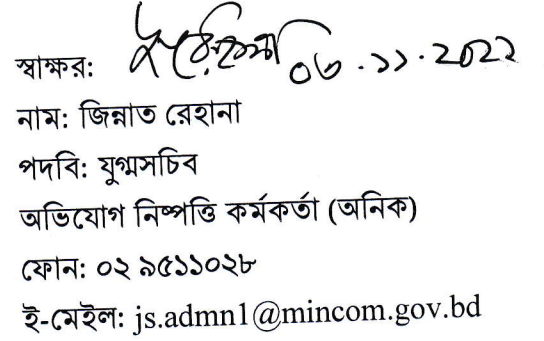 স্বাক্ষর: ০৬.১১.২০২২
নাম: জিন্নাত রেহানা
পদবি: যুগ্মসচিব
অভিযোগ নিষ্পত্তি কর্মকর্তা (অনিক)
ফোন: ০২ ৯৫১১০২৮
ই-মেইল: js.admn1@mincom.gov.bd